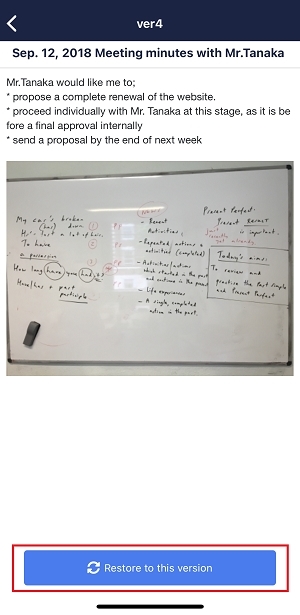 ver4
Sep. 12, 2018 Meeting minutes with Mr.Tanaka
Mr.Tanaka would like me to;
* propose a complete renewal of the website.
* proceed individually with Mr. Tanaka at this stage, as it is be
fore a final approval internally
* send a proposal by the end of next week
My car's broken
(has) down
He's lost a lot of hair.
To have
a possession
How long have you had it?
Have/has + past
participle
- Recent
Activities
- Repeated actions &
activities (completed)
- Activities/actions
which started in the past
and continue in the present
- Life experiences
- A single, completed
action in the past.
Present Perfect:
Present RESULT
is important.
just
recently
yet already
Today's aims:
To review and
practice the Past Simple
and Present Perfect
Restore to this version